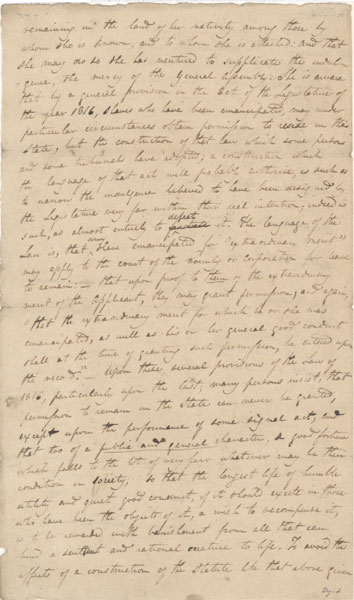 remaining in the land of her nativity among those by
whom she is known, and to whom she is attached. And that
she may do so she has ventured to supplicate the indul-
gence, the mercy of the General Assembly. She is aware
that by a general provision in the Act of the Legislature of
the year 1816, slaves who have been emancipated may under
particular circumstances obtain permission to reside in the
State; but the construction of that law which some persons
and some tribunals have adopted, a construction which
the language of that act will probably authorise, is such as
to narrow the indulgence believed to have been designed by
the Legislature very far within their real intention; indeed is
such, as almost entirely to defeat it. The language of the
Law is, that any slave emancipated for "extraordinary merit"
may apply to the court of the county or corporation for leave
to remain:— that upon proof to them of the extraordinary
merit of the applicant, they may grant permission; and again,
"that the extraordinary merit for which he or she was
emancipated, as well as his or her general good conduct
shall at the time of granting such permission, be entered upon
the record."— Upon these several provisions of the law of
1816, particularly upon the last, many persons insist, that
permission to remain in the State can never be granted,
except upon the performance of some signal act, and
that too of a public and general character, a good fortune
which falls to the lot of very few whatever may be their
condition in society; so that the longest life of humble
utility and quiet good conduct, if it should excite in those
who have been the objects of it, a wish to recompense it,
is to be rewarded with banishment from all that can
bind a sentient and rational creature to life. To avoid the
effects of a construction of the Statute like that above given